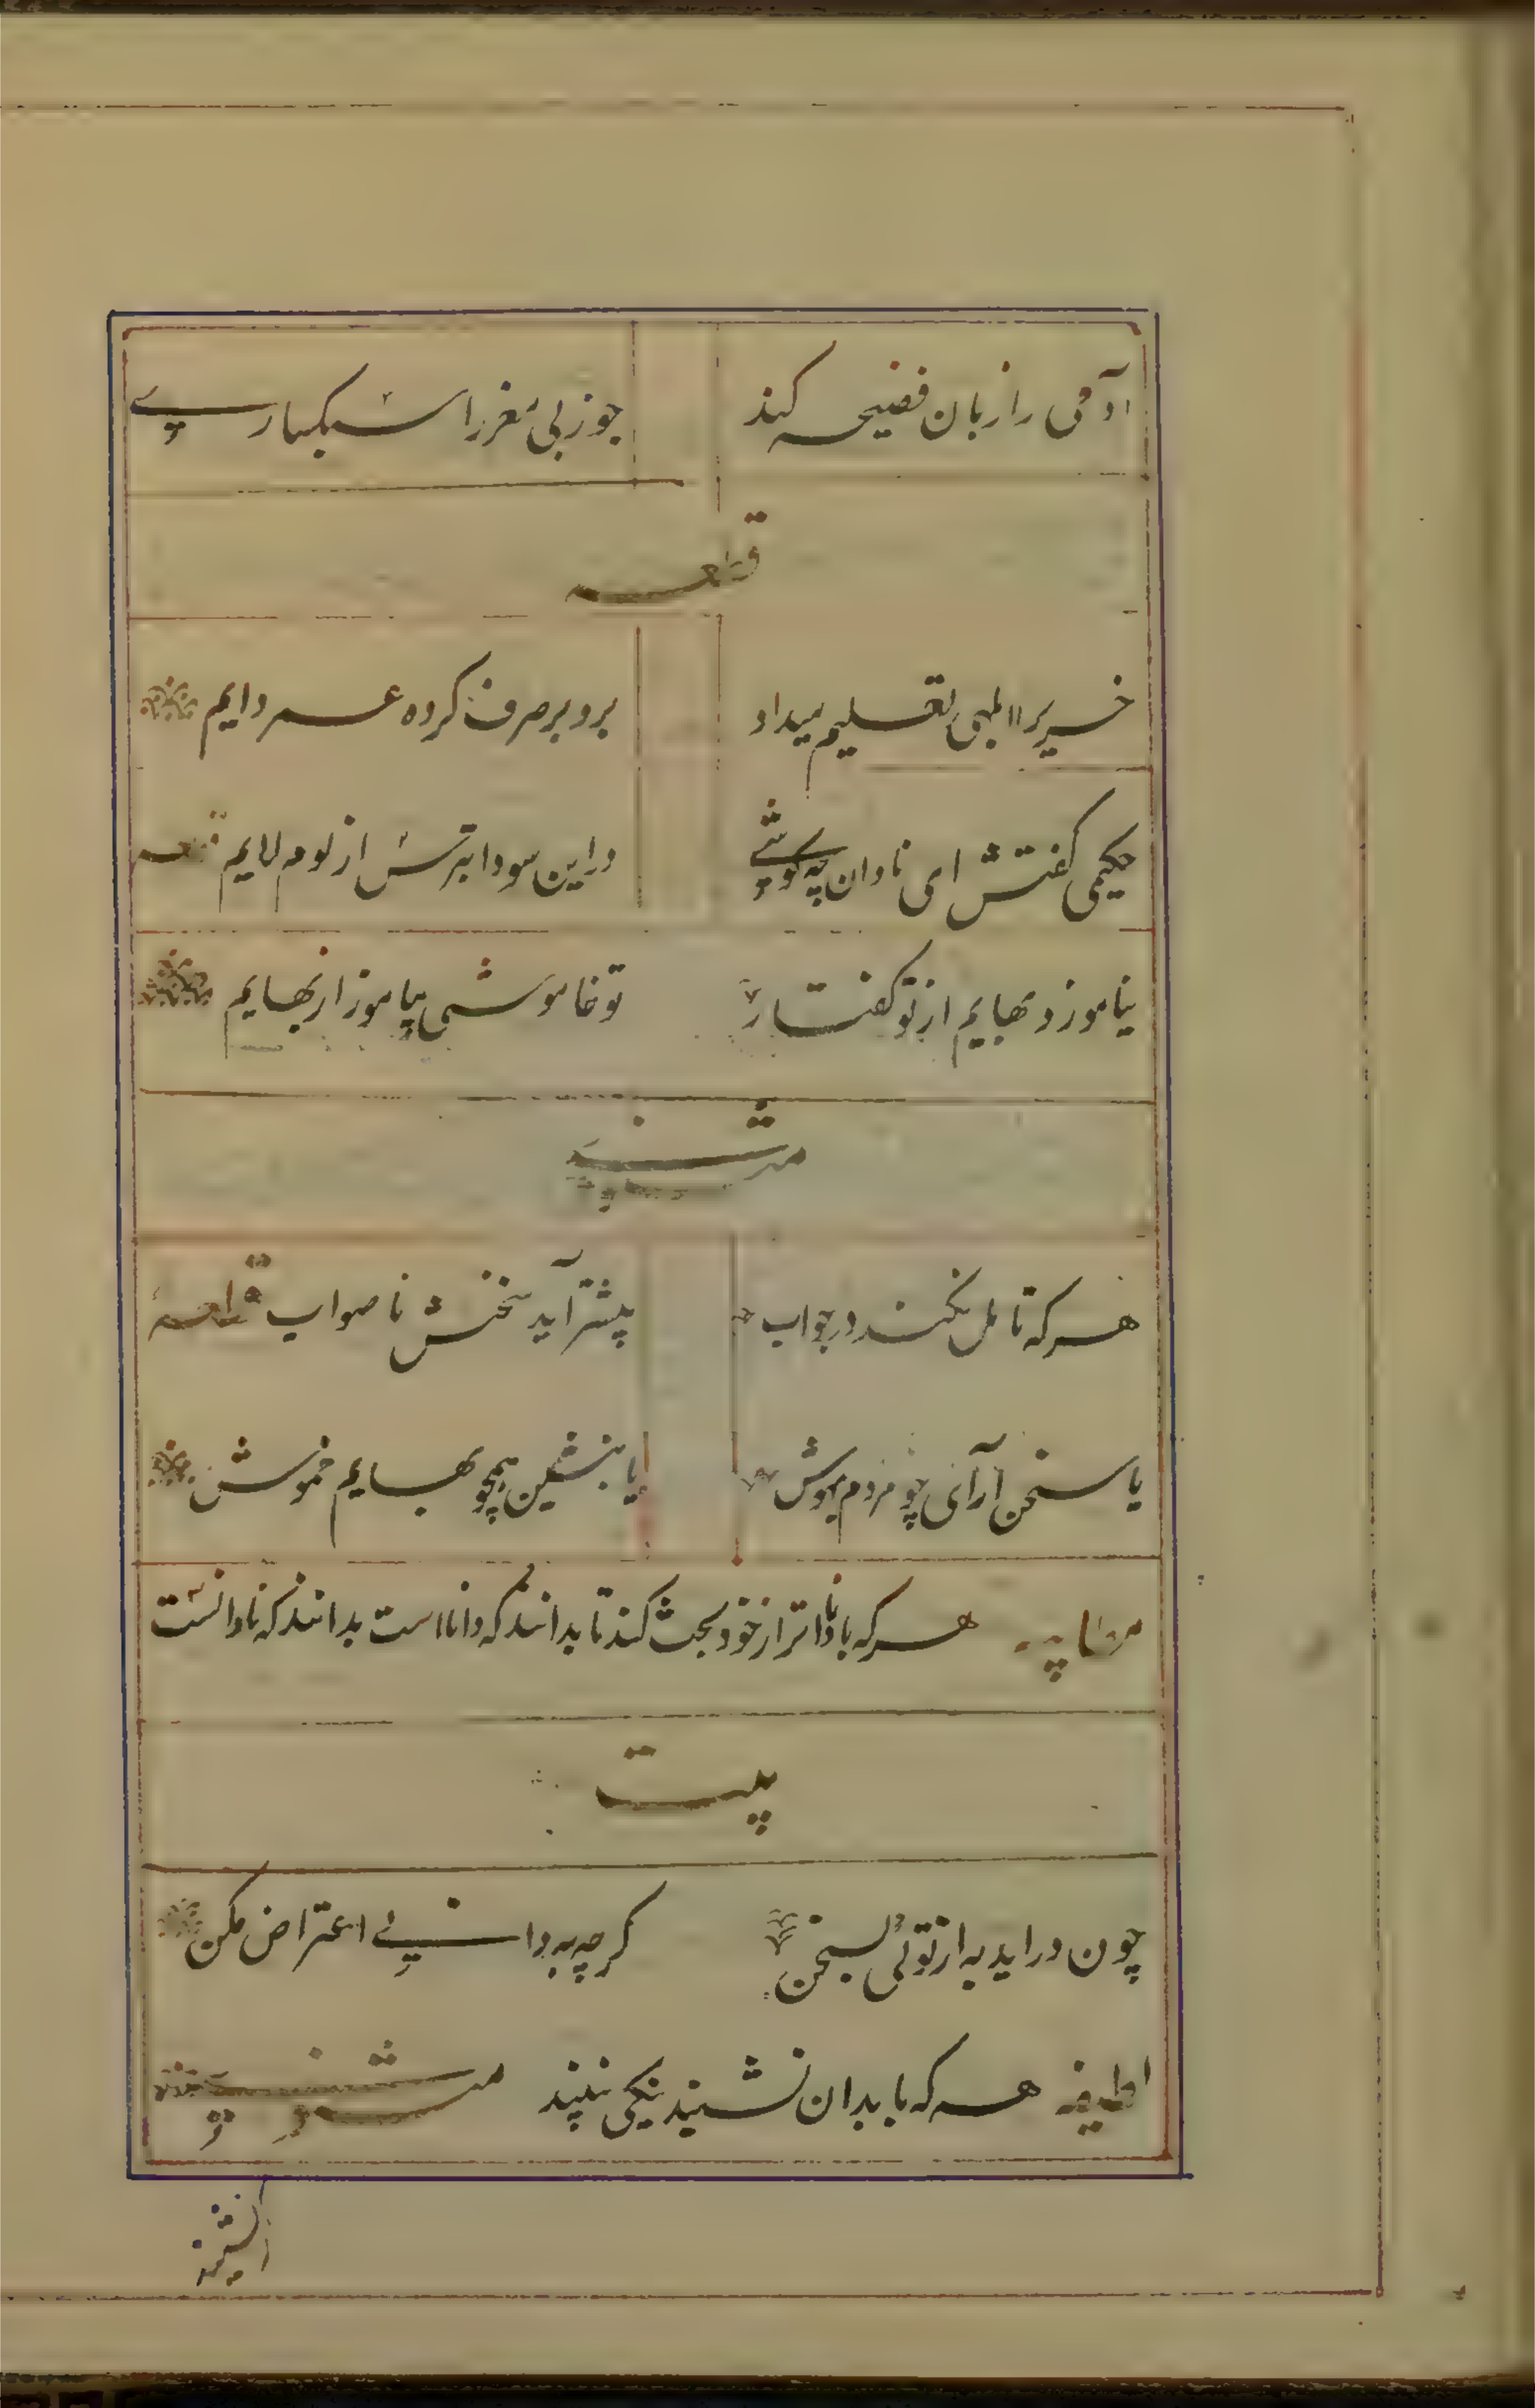 آدمی را زبان فضیحه کند جوز بی مغز را سبکباری
قطعه
خریرا ابلهی تعلیم میداد برو بر صرف کرده عمر دایم
حکیمی کفتش ای نادان چه کوشی در این سودا بترس از لوم لایم قطعه
نیاموزد بهایم از تو کفتار تو خاموشی بیاموز از بهایم
مثنوی
هر که تامل نکند در جواب بیشتر آید سخنش ناصواب قطعه
یا سخن آرای چو مردم بهوش یا بنشین همچو بهایم خموش
هر که با داناتر از خود بحث کند تا بدانند که دانا است بدانند که نادانست
بیت
چون دراید به از توئی بسخن کرچه به دانی اعتراض مکن
لطیفه هر که با بدان نشیند نیکی نبیند مثنوی